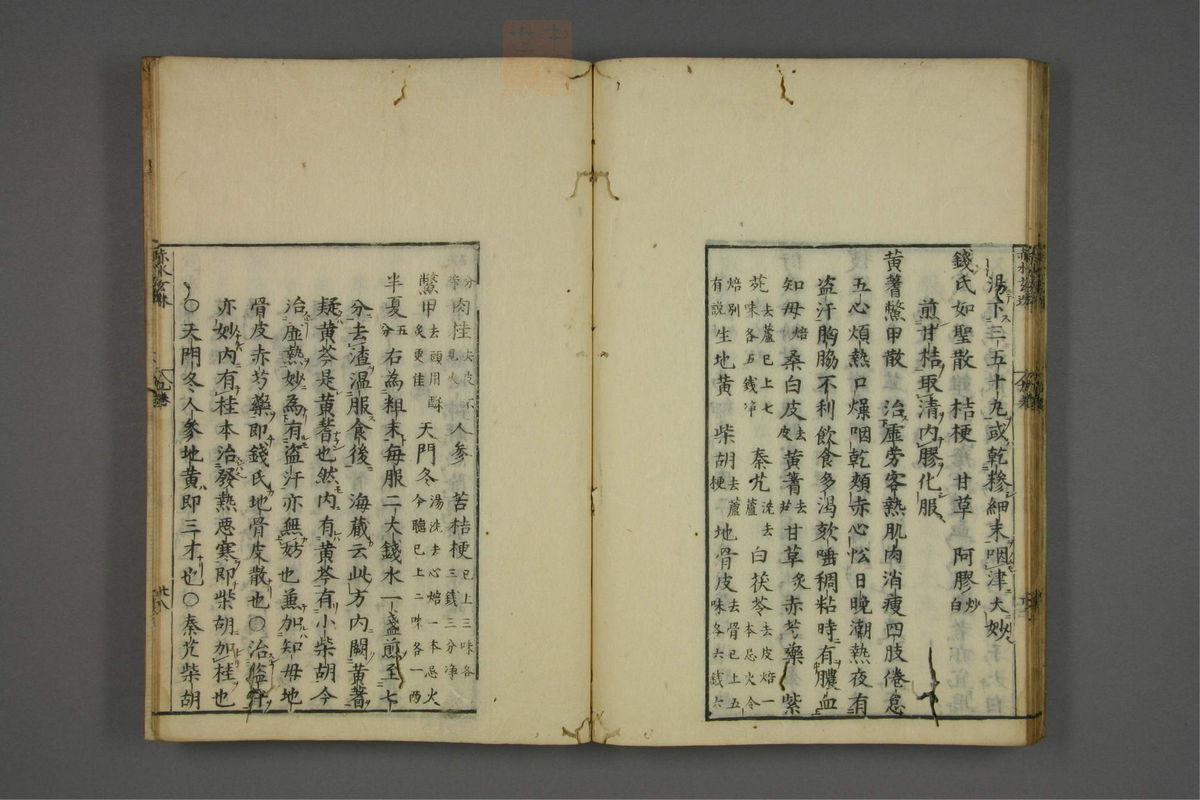 湯下三五十丸或乾糝細末咽津大妙
錢氏如聖散 桔梗 甘草 阿膠炒白
煎甘桔取清内膠化服
黄蓍鱉甲散 治虚労客熱肌肉消瘦四肢倦怠
五心煩熱口燥咽乾頰赤心忪日晩潮熱夜有
盗汗胸脇不利飲食多渇欬唾稠粘時有膿血
知母焙 桑白皮去皮 黄蓍去芦 甘草炙 赤芍藥 紫
菀去蘆已上七味各五錢淨 秦艽洗去蘆 白茯苓去皮焙一本忌火令
焙別有説 生地黄 柴胡去蘆梗 地骨皮去骨已上五味各六錢六
分 肉桂去皮不見火 人參 苦桔梗已上三味各三錢三分淨
鱉甲去頭用酥炙更佳 天門冬湯洗去心焙一本忌火令 已上二味各一两
半夏五分 右為粗末毎服二大錢水一盞煎至七
分去渣温服食後 海蔵云此方内闕黄蓍
疑黄芩是黄蓍也然内有黄芩有小柴胡今
治虚熱妙為有盗汗亦無妨也兼加知母地
骨皮赤芍藥即錢氏地骨皮散也〇治盗汗
亦妙内有桂本治發熱悪寒即柴胡加桂也
〇天門冬人參地黄即三才也〇秦艽柴胡
赤水玄珠
廿八